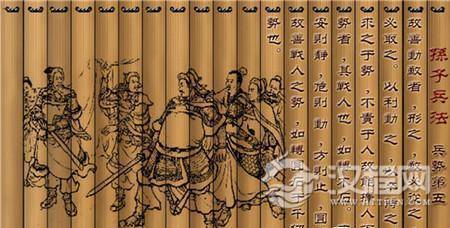 孫子兵法 兵勢第五
故善動敵者，形之，敵必從之
必取之。以利動之，
求之于勢，不責于人故
勢者，其戰人也，如轉
安則靜，危則動，方則止，圓
故善戰人之勢，如轉圓石于千仞
勢也。
汉程网
HTTPCN.COM